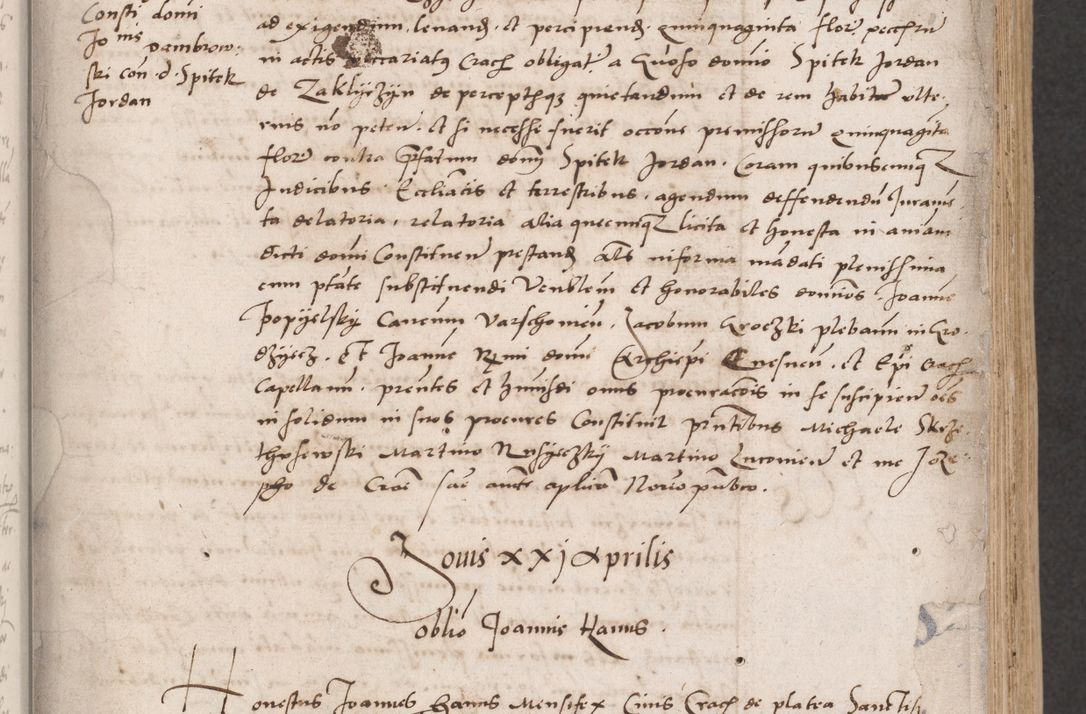 Consti domi
Jo nis Dambrow:
ski con d. Spitek
Jordan
ad exigendum, levand. et percipiend. quinquaginta flor. peccun
in actis vicariatus Crach obligat. a Gnoso domino Spitek Jordan
de Zaklyczyn de perceptisque quietandum et de rem habitur ulte-
rius no peten. et si necesse fuerit occone premissorum quinquaginta
floren contra Prfatum domi Spitek Jordan. Coram quibuscumque
Judicibus Eccliacis et terrestribus. agendum deffendendu Juramen
ta delatoria, relatoria alia quecumque licita et honesta in animam
dicti domi Constituen prestand. Als in forma mandati plenissima
cum ptate substituendi Venblem et honorabiles dominos. Joanne
Popyelsky Canonum Varschovien. Jacobum Groczki plebanum in Gro-
dzyecz. Et Joanne Rmi domi Archiepi Gnesnen. et Epi Crach
Capellanum. prentes et hmusdi onus procuracois in se suscipien oes
in solidum in suos procures Constituit Prntibus Michaele Skrze-
thussewski Martino Russyeczky Martino Lucovien et me Joze-
pho de Crac sac aucte aplica Notario publico.
Jovis xxj Aprilis
Oblio Joannis Hanus.
Honestus Joannes Hanus Mensifex Civis Crach de platea Sancti